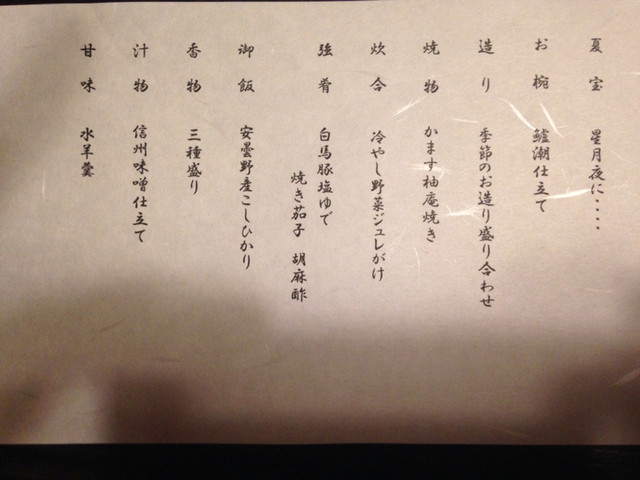 夏宝 星月夜に・・・・
お椀 鱸潮仕立て
造り 季節のお造り盛り合わせ
焼物 かます柚庵焼き
炊合 冷やし野菜ジュレがけ
強肴 白馬豚塩ゆで
焼き茄子 胡麻酢
御飯 安曇野産こしひかり
香物 三種盛り
汁物 信州味噌仕立て
甘味 水羊羹